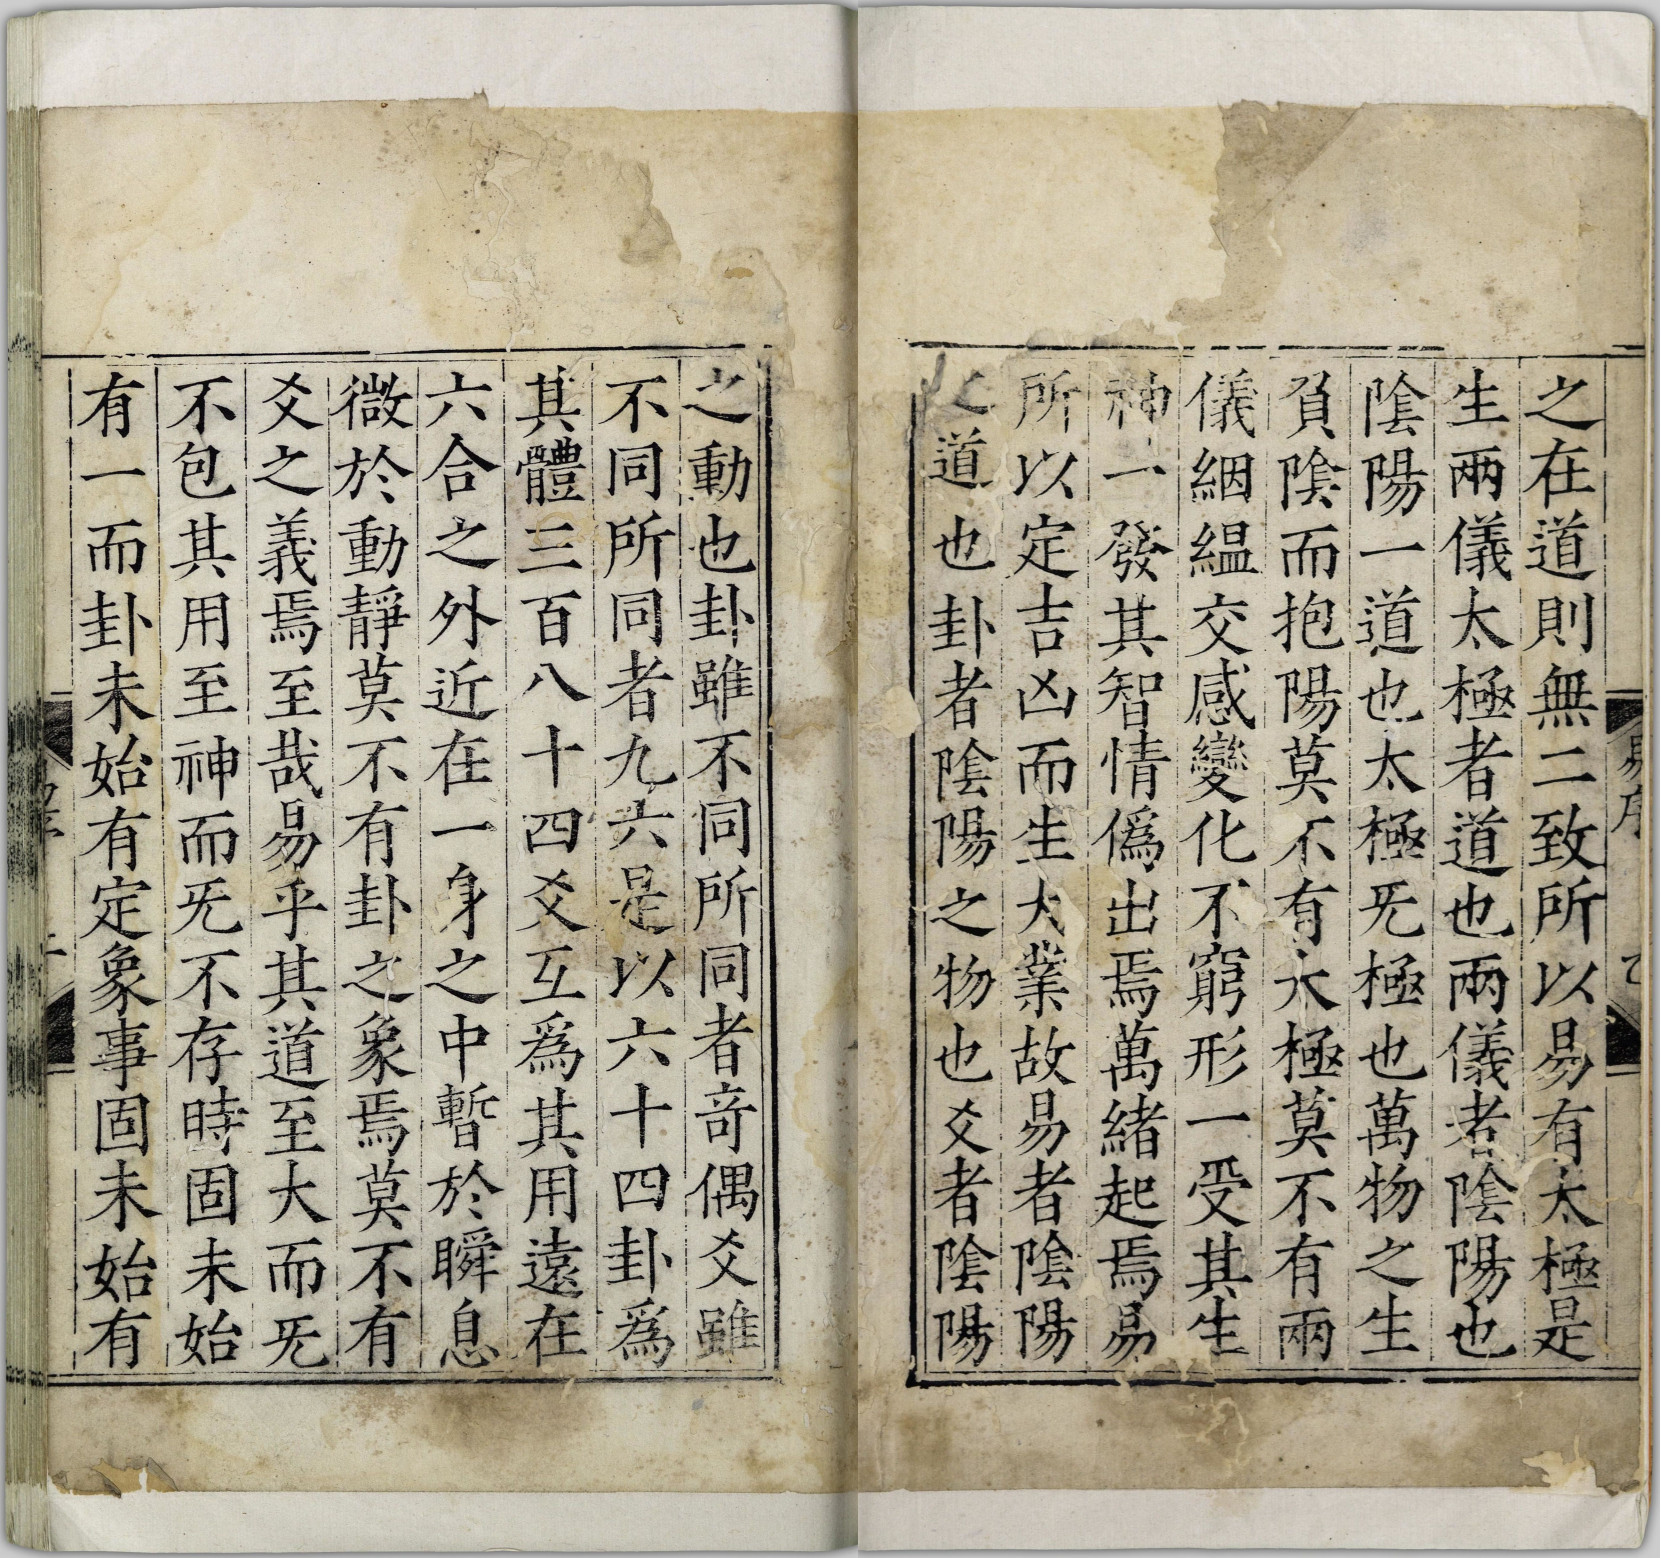 之在道則無二致所以易有太極是
生兩儀太極者道也兩儀者陰陽也
陰陽一道也太極旡極也萬物之生
負陰而抱陽莫不有太極莫不有兩
儀絪縕交感變化不窮形一受其生
神一發其智情僞出焉萬緒起焉易
所以定吉凶而生大業故易者陰陽
之道也卦者陰陽之物也爻者陰陽
之動也卦雖不同所同者竒偶爻雖
不同所同者九六是以六十四卦爲
其體三百八十四爻互爲其用遠在
六合之外近在一身之中暫於瞬息
微於動靜莫不有卦之象焉莫不有
爻之義焉至哉易乎其道至大而旡
不包其用至神而旡不存時固未始
有一而卦未始有定象事固未始有
易序